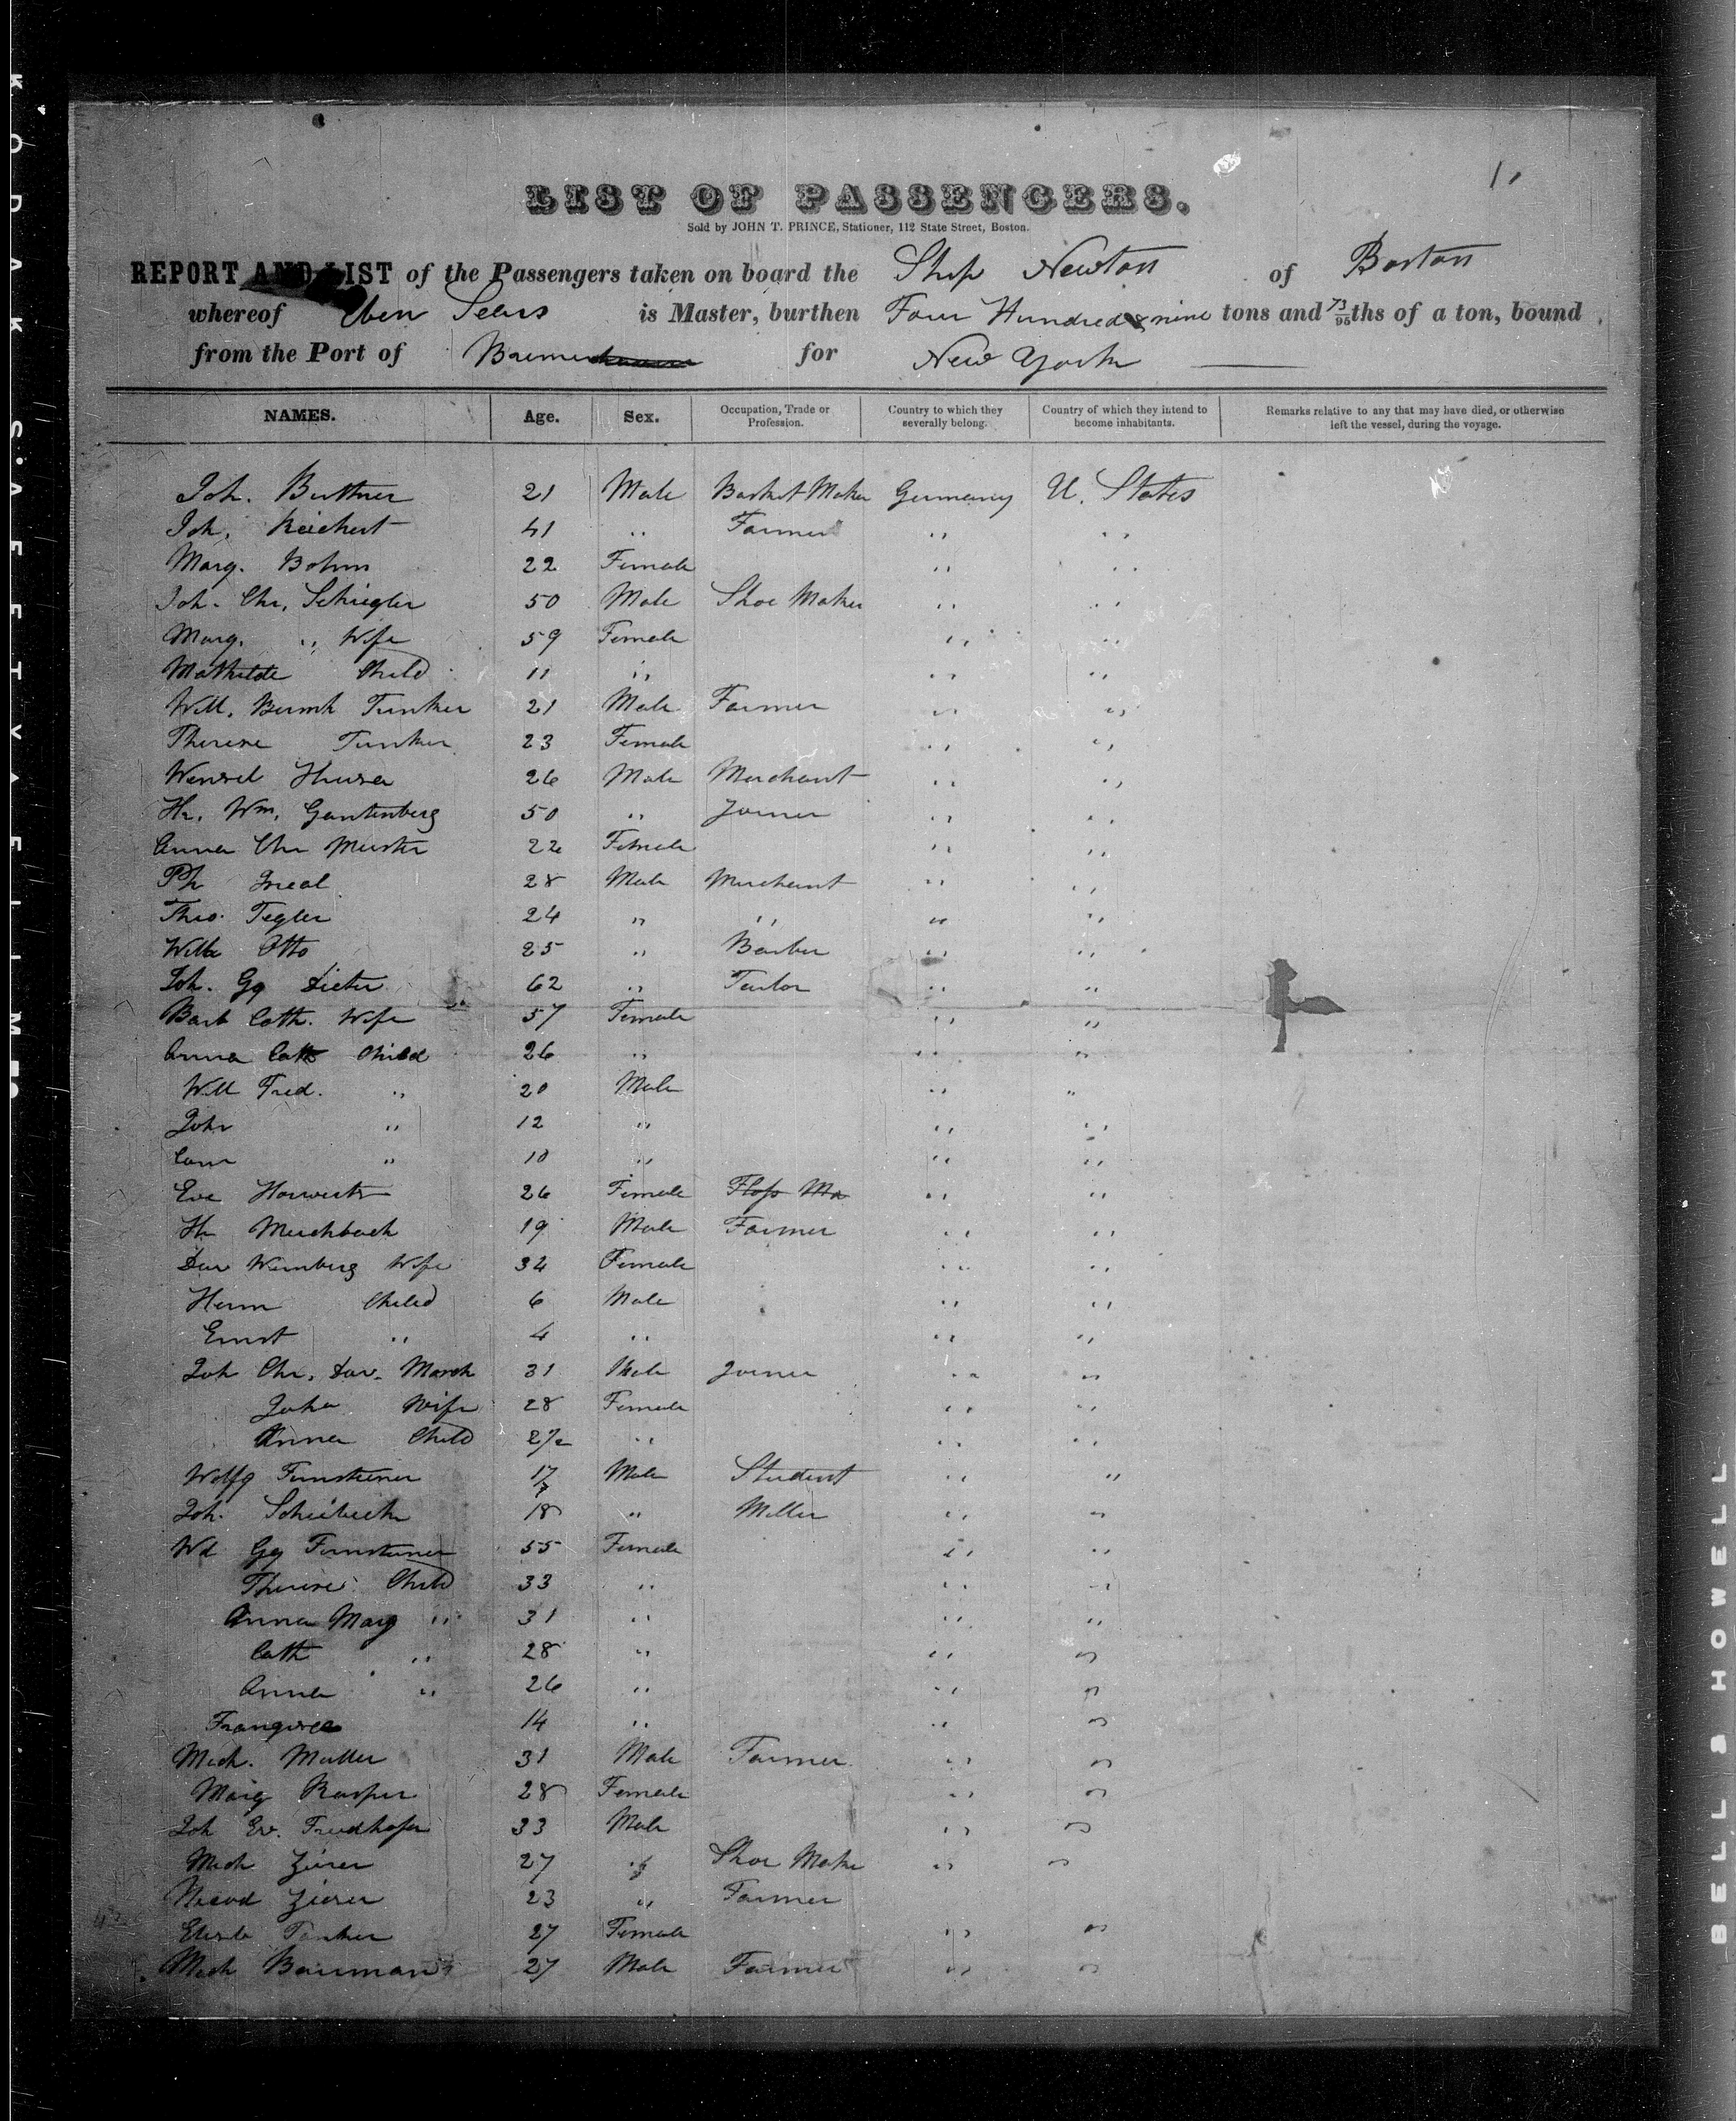 11
LIST OF PASSENGERS.
Sold by JOHN T. PRINCE, Stationer, 112 State Street, Boston.
REPORT AND LIST of the Passengers taken on board the Ship Newton of Boston
whereof Eben Sears is Master, burthen Four Hundred & nine tons and 73/95ths of a ton, bound
from the Port of Bremen for New York
NAMES. Age. Sex. Occupation, Trade or Profession. Country to which they severally belong. Country of which they intend to become inhabitants. Remarks relative to any that may have died, or otherwise left the vessel, during the voyage.
Joh. Buttner 21 Male Basket Maker Germany U. States
Joh. Reichert 41 " Farmer " "
Marg. Bohm 22 Female " "
Joh. Chr. Schiegler 50 Male Shoe Maker " "
Marg. " Wife 59 Female " "
Mathilde Child 11 " " "
Will. Bernh Tunker 21 Male Farmer " "
Therese Tunker 23 Female " "
Wenzel 26 Male Merchant " "
Hr. Wm. Gantenberg 50 " Joiner " "
Anna Chr Meister 22 Female " "
Ph 28 Male Merchant " "
Theo. Tegler 24 " " " "
Wilh Otto 25 " Barber " "
Joh. Gg Dieter 62 " Tailor " "
Barb Cath. Wife 57 Female " "
Anna Cath Child 26 " " "
Will Fred. " 20 Male " "
John " 12 " " "
" 10 " " "
Eva 26 Female " "
Hr 19 Male Farmer " "
Weinberg Wife 34 Female " "
Herm Child 6 Male " "
Ernst " 4 " " "
Joh Chr. Dav. March 31 Male Joiner " "
Joha Wife 28 Female " "
Anna Child 2 1/2 " " "
Wolfg Fensterner 17 Male Student " "
Joh. Scheibeck 18 " Miller " "
Wd Gg Fensterner 55 Female " "
Therese Child 33 " " "
Anna Marg " 31 " " "
Cath " 28 " " "
Anna " 26 " " "
14 " " "
Mich. Muller 31 Male Farmer " "
Marg Kasper 28 Female " "
Joh Ev. Friedhofer 33 Male " "
Mich Zierer 27 " Shoe Maker " "
Zierer 23 " Farmer
27 Female " "
Mich Bauman 27 Male Farmer " "
KODAK SAFETY FILM
BELL & HOWELL